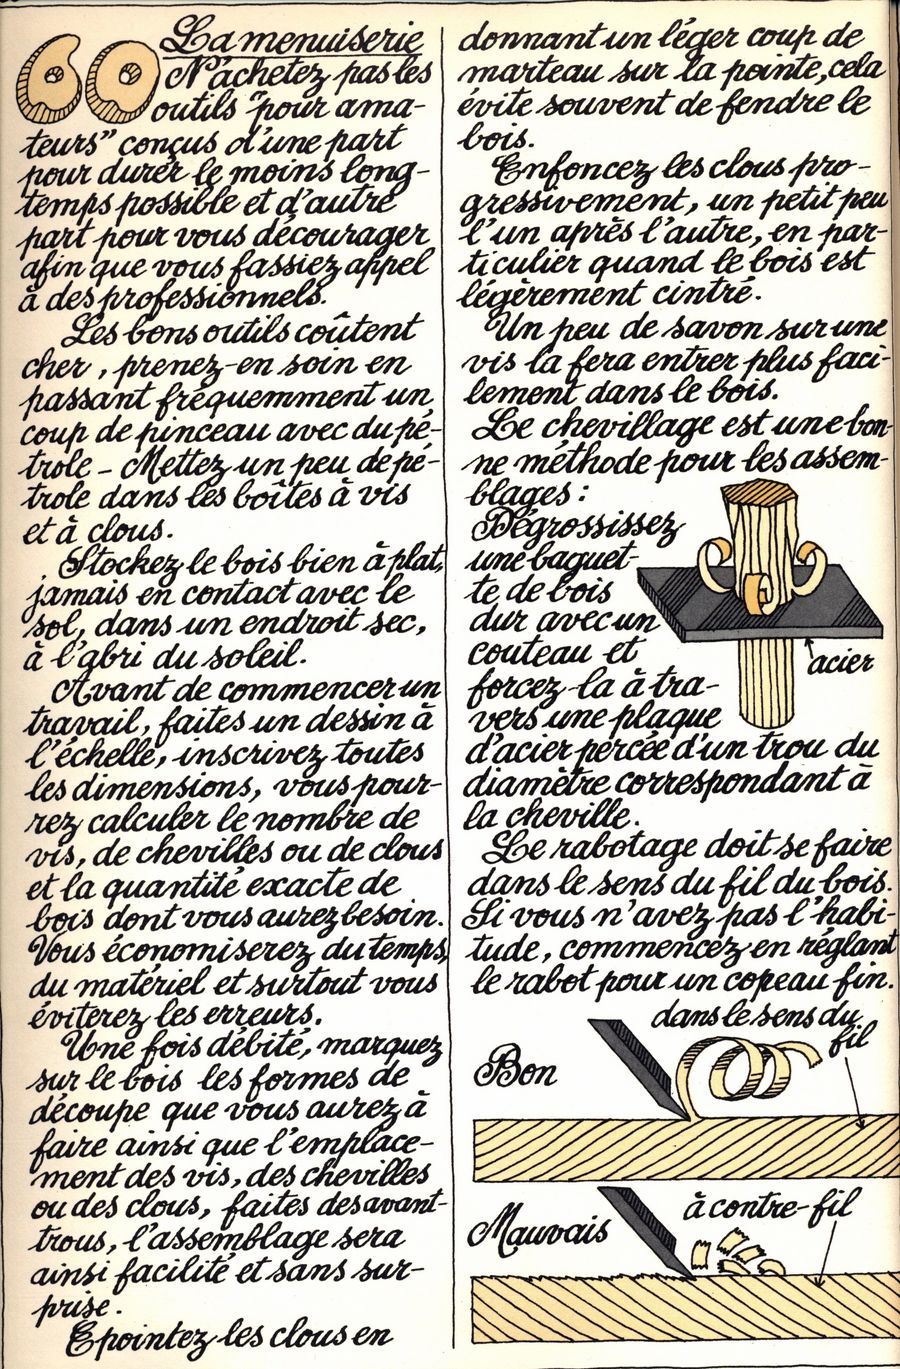 60
La menuiserie
N'achetez pas les
outils "pour ama-
teurs" conçus d'une part
pour durer le moins long-
temps possible et d'autre
part pour vous décourager
afin que vous fassiez appel
à des professionnels.
Les bons outils coûtent
cher, prenez-en soin en
passant fréquemment un
coup de pinceau avec du pé-
trole - Mettez un peu de pé-
trole dans les boîtes à vis
et à clous.
Stockez le bois bien à plat,
jamais en contact avec le
sol, dans un endroit sec,
à l'abri du soleil.
Avant de commencer un
travail, faites un dessin à
l'échelle, inscrivez toutes
les dimensions, vous pour-
rez calculer le nombre de
vis, de chevilles ou de clous
et la quantité exacte de
bois dont vous aurez besoin.
Vous économiserez du temps,
du matériel et surtout vous
éviterez les erreurs.
Une fois débité, marquez
sur le bois les formes de
découpe que vous aurez à
faire ainsi que l'emplace-
ment des vis, des chevilles
ou des clous, faites des avant-
trous, l'assemblage sera
ainsi facilité et sans sur-
prise.
Epointez les clous en
donnant un léger coup de
marteau sur la pointe, cela
évite souvent de fendre le
bois.
Enfoncez les clous pro-
gressivement, un petit peu
l'un après l'autre, en par-
ticulier quand le bois est
légèrement cintré.
Un peu de savon sur une
vis la fera entrer plus faci-
lement dans le bois.
Le chevillage est une bon-
ne méthode pour les assem-
blages :
Dégrossissez
une baguet-
te de bois
dur avec un
couteau et
forcez-la à tra-
vers une plaque
d'acier percée d'un trou du
diamètre correspondant à
la cheville.
acier
Le rabotage doit se faire
dans le sens du fil du bois.
Si vous n'avez pas l'habi-
tude, commencez en réglant
le rabot pour un copeau fin.
dans le sens du
fil
Bon
à contre-fil
Mauvais